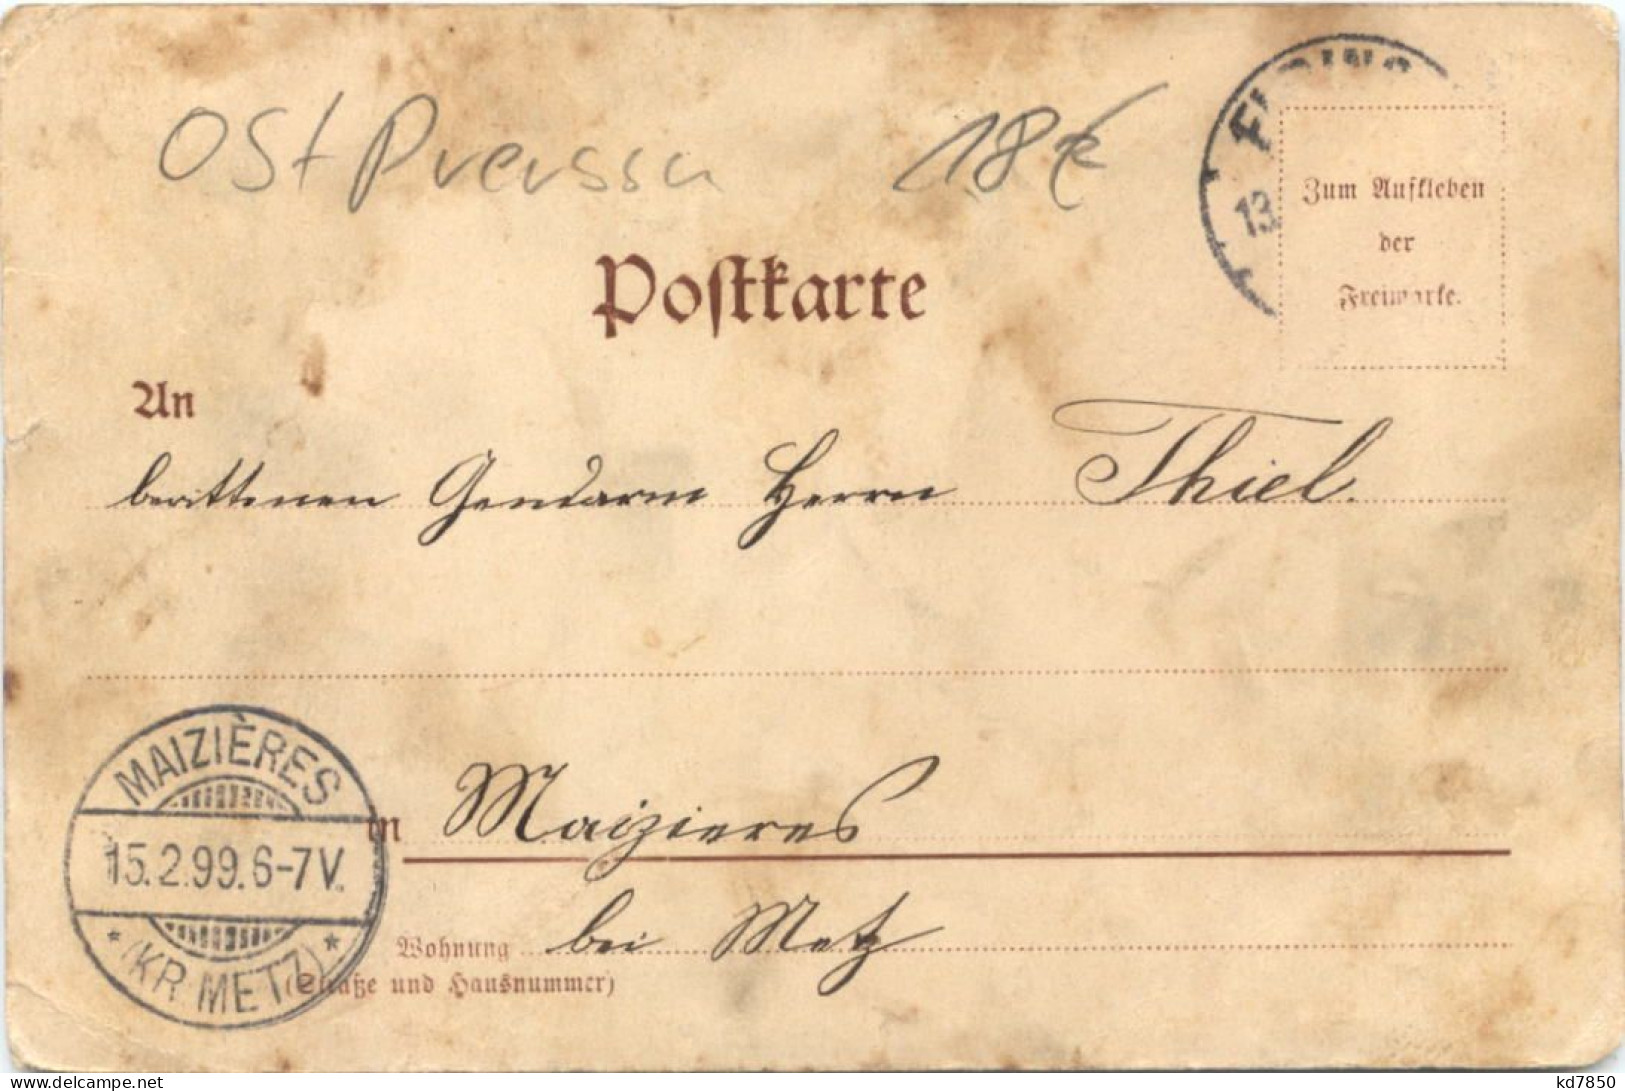 OstPreussen 18€
13
Zum Aufkleben
der
Freimarke.
Postkarte
An
berittenen Gendarm Herrn Thiel.
MAIZIÈRES
15.2.99.6-7V.
* (KR. METZ) *
in Maizieres
Wohnung bei Metz
(Straße und Hausnummer)
kd7850